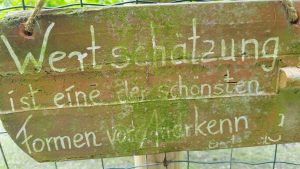 Wertschätzung
ist eine der schönsten
Formen von Anerkenn